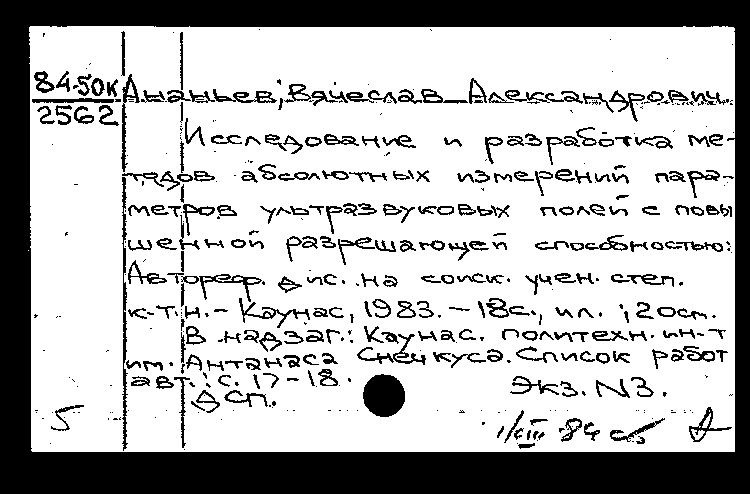 84-50к
2562
Ананьев, Вячеслав Александрович.
Исследование и разработка ме-
тодов абсолютных измерений пара-
метров ультразвуковых полей с повы
шенной разрешающей способностью:
Автореф. дис. на соиск. учен. степ.
к.т.н. - Каунас, 1983. - 18с., ил. ; 20см.
В надзаг.: Каунас. политехн. ин-т
им. Антанаса Снечкуса. Список работ
авт.: с. 17-18.
ДСП.
Экз. N3.
5
84